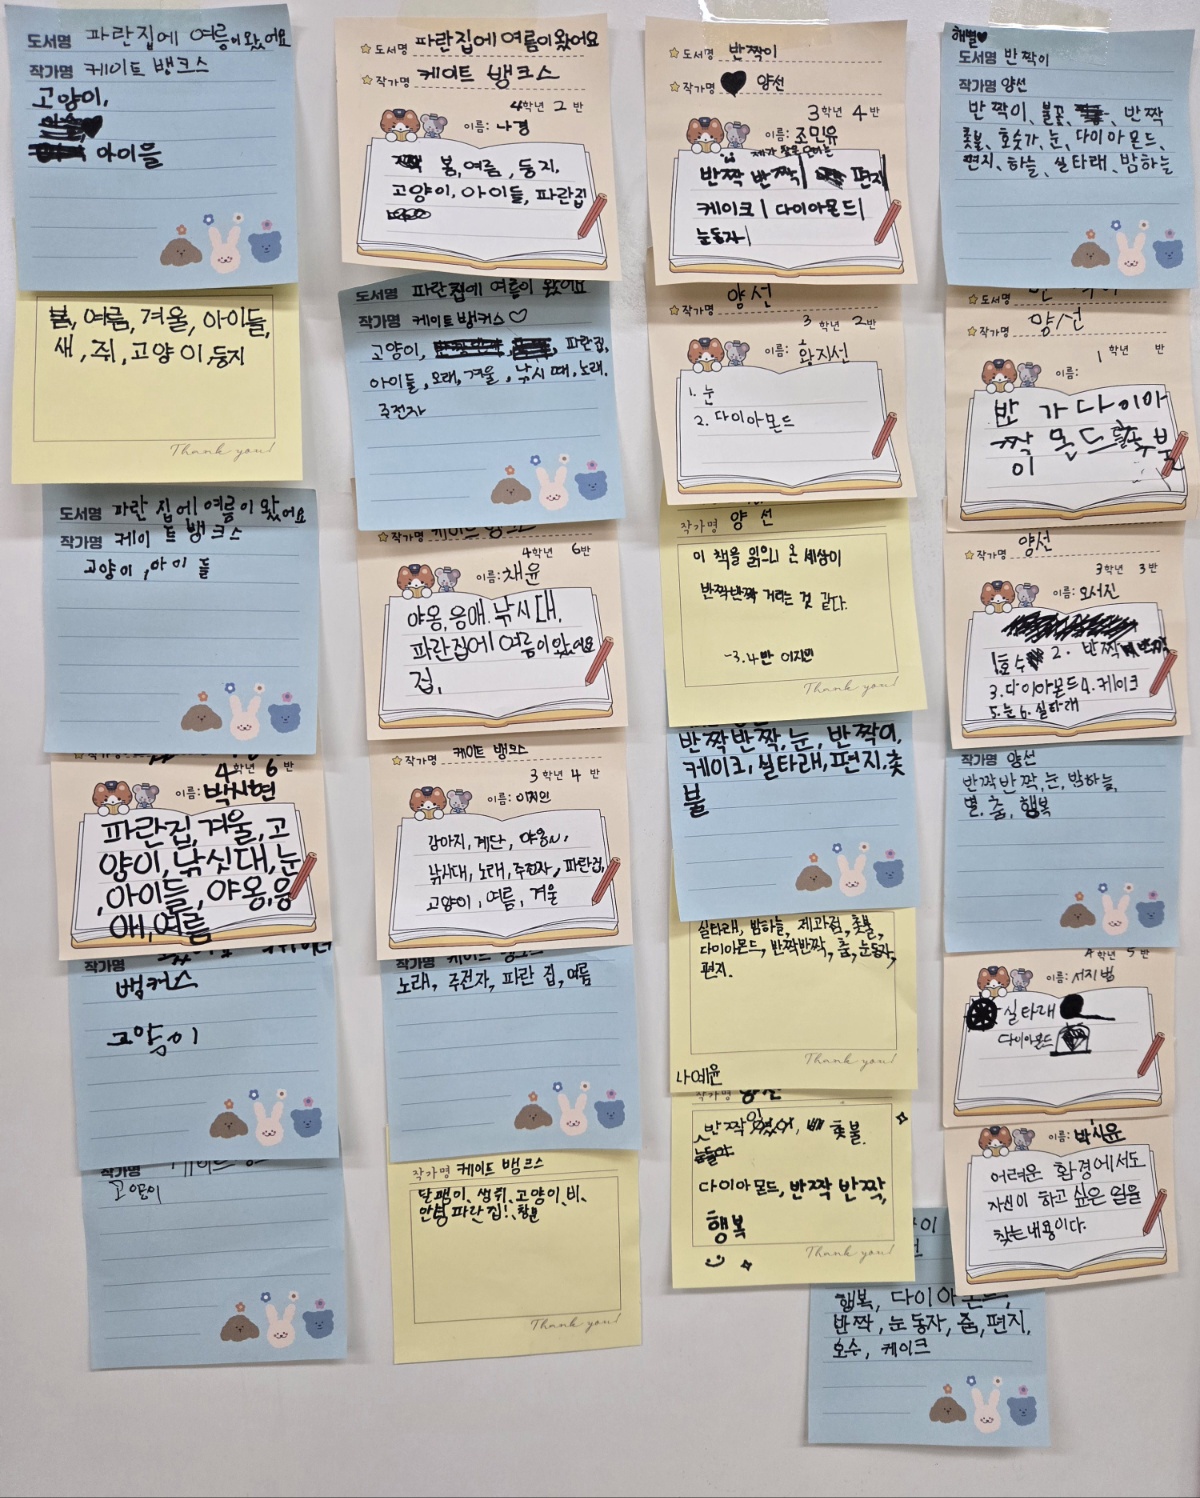 도서명 파란집에 여름이 왔어요
작가명 케이트 뱅크스
고양이,
아이들
봄, 여름, 겨울, 아이들,
새, 쥐, 고양이, 둥지
Thank you!
도서명 파란 집에 여름이 왔어요
작가명 케이트 뱅크스
고양이, 아이들
4학년 6반
이름: 박시현
파란집, 겨울, 고
양이, 낚싯대, 눈
, 아이들, 야옹, 응
애, 여름
작가명
뱅커스
고양이
작가명
고양이
도서명 파란집에 여름이 왔어요
작가명 케이트 뱅크스
4학년 2반
이름: 나경
봄, 여름, 둥지,
고양이, 아이들, 파란집
도서명 파란집에 여름이 왔어요
작가명 케이트 뱅커스♡
고양이, 파란집,
아이들, 모래, 겨울, 낚시대, 노래,
주전자
작가명 케이트 뱅크스
4학년 6반
이름: 채윤
야옹, 응애. 낚시대,
파란집에 여름이 왔어요
집,
작가명 케이트 뱅크스
3학년 4반
이름: 이지인
강아지, 계단, 야옹~,
낚시대, 노래, 주전자, 파란집,
고양이, 여름, 겨울
노래, 주전자, 파란 집, 여름
작가명 케이트 뱅크스
단팽이, 생쥐, 고양이, 비,
안녕 파란집!, 창문
Thank you!
도서명 반짝이
작가명 ♥ 양선
3학년 4반
이름: 조민유
제가 잘못
반짝 반짝| 편지|
케이크| 다이아몬드|
눈동자|
작가명 양선
3학년 2반
이름: 황지선
1. 눈
2. 다이아몬드
작가명 양선
이 책을 읽으니 온 세상이
반짝반짝 거리는 것 같다.
-3.4반 이지인
Thank you!
반짝반짝, 눈, 반짝이,
케이크, 실타래, 편지, 촛
불
실타래, 밤하늘, 제과점, 촛불,
다이아몬드, 반짝반짝, 춤, 눈동자,
편지.
Thank you!
나예윤
작가명 양선
반짝 촛불.
다이아몬드, 반짝 반짝,
행복
Thank you!
행복, 다이아몬드,
반짝, 눈동자, 춤, 편지,
호수, 케이크
해별♥
도서명 반짝이
작가명 양선
반짝이, 불꽃, 반짝
촛불, 호숫가, 눈, 다이아몬드,
편지, 하늘, 실타래, 밤하늘
도서명
작가명 양선
1학년 반
이름:
반 가 다이아
짝 몬드
이
작가명 양선
3학년 3반
이름: 오서진
1호수 2. 반짝
3. 다이아몬드 4. 케이크
5. 눈 6. 실타래
작가명 양선
반짝반짝, 눈, 밤하늘,
별, 춤, 행복
4학년 5반
이름: 서지범
실타래
다이아몬드
이름: 박시윤
어려운 환경에서도
자신이 하고 싶은 일을
찾는 내용이다.